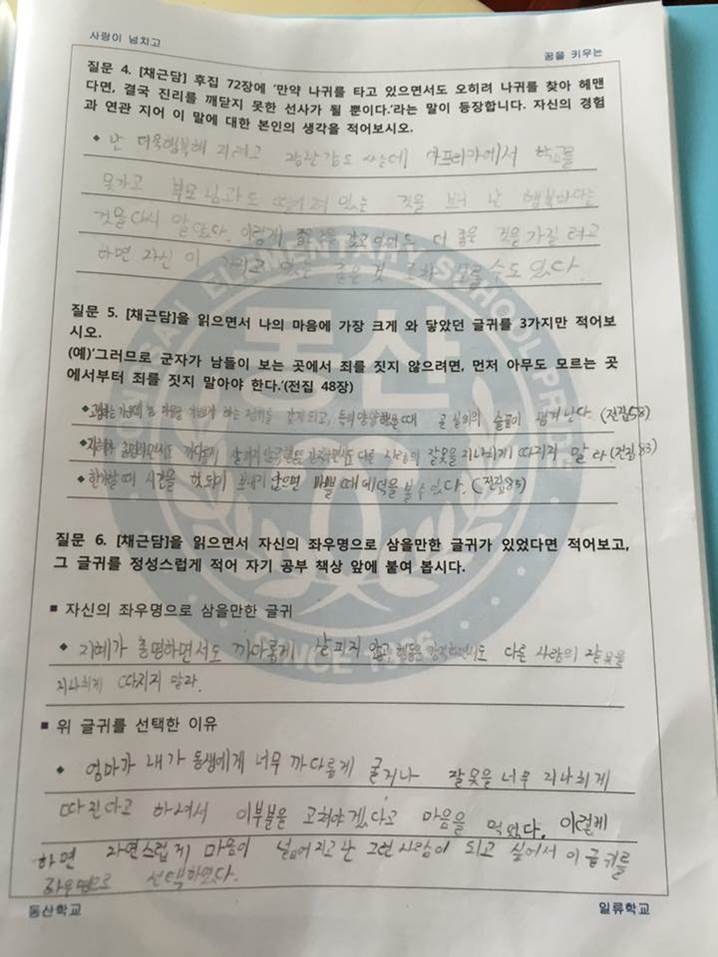 사랑이 넘치고
꿈을 키우는
질문 4. [채근담] 후집 72장에 '만약 나귀를 타고 있으면서도 오히려 나귀를 찾아 헤맨
다면, 결국 진리를 깨닫지 못한 선사가 될 뿐이다.'라는 말이 등장합니다. 자신의 경험
과 연관 지어 이 말에 대한 본인의 생각을 적어보시오.
난 더욱 행복해 지려고 장난감도 사는데 아프리카에서 학교를
못가고 부모님과도 떨어져 있는 것을 보니 난 행복하다는
것을 다시 알았다. 이렇게 좋은 것을 갖고 있어도 더 좋은 것을 가질려고
하면 자신이 가지고 있는 좋은 것 모를 수도 있다.
질문 5. [채근담]을 읽으면서 나의 마음에 가장 크게 와 닿았던 글귀를 3가지만 적어보
시오.
(예)'그러므로 군자가 남들이 보는 곳에서 죄를 짓지 않으려면, 먼저 아무도 모르는 곳
에서부터 죄를 짓지 말아야 한다.'(전집 48장)
마음을 하는 갖게 되고, 득의양양했을 때 곧 실의의 슬픔이 생겨난다. (전집58)
지혜가 총명하면서도 까다롭게 살피지 않고 행동 다른 사람의 잘못을 지나치게 따지지 말라 (전집83)
한가할 때 시간을 헛되이 보내지 않으면 바쁠 때에 덕을 볼 수 있다. (전집85)
질문 6. [채근담]을 읽으면서 자신의 좌우명으로 삼을만한 글귀가 있었다면 적어보고,
그 글귀를 정성스럽게 적어 자기 공부 책상 앞에 붙여 봅시다.
■ 자신의 좌우명으로 삼을만한 글귀
지혜가 총명하면서도 까다롭게 살피지 않고 행동을 다른 사람의 잘못을
지나치게 따지지 말라.
■ 위 글귀를 선택한 이유
엄마가 내가 동생에게 너무 까다롭게 굴거나 잘못을 너무 지나치게
따진다고 하셔서 이부분을 고쳐야겠다고 마음을 먹었다. 이렇게
하면 자연스럽게 마음이 넓어지고 난 그런 사람이 되고 싶어서 이 글귀를
좌우명으로 선택하였다.
동산학교
일류학교
동산
ELEMENTARY SCHOOL
SINCE 1966